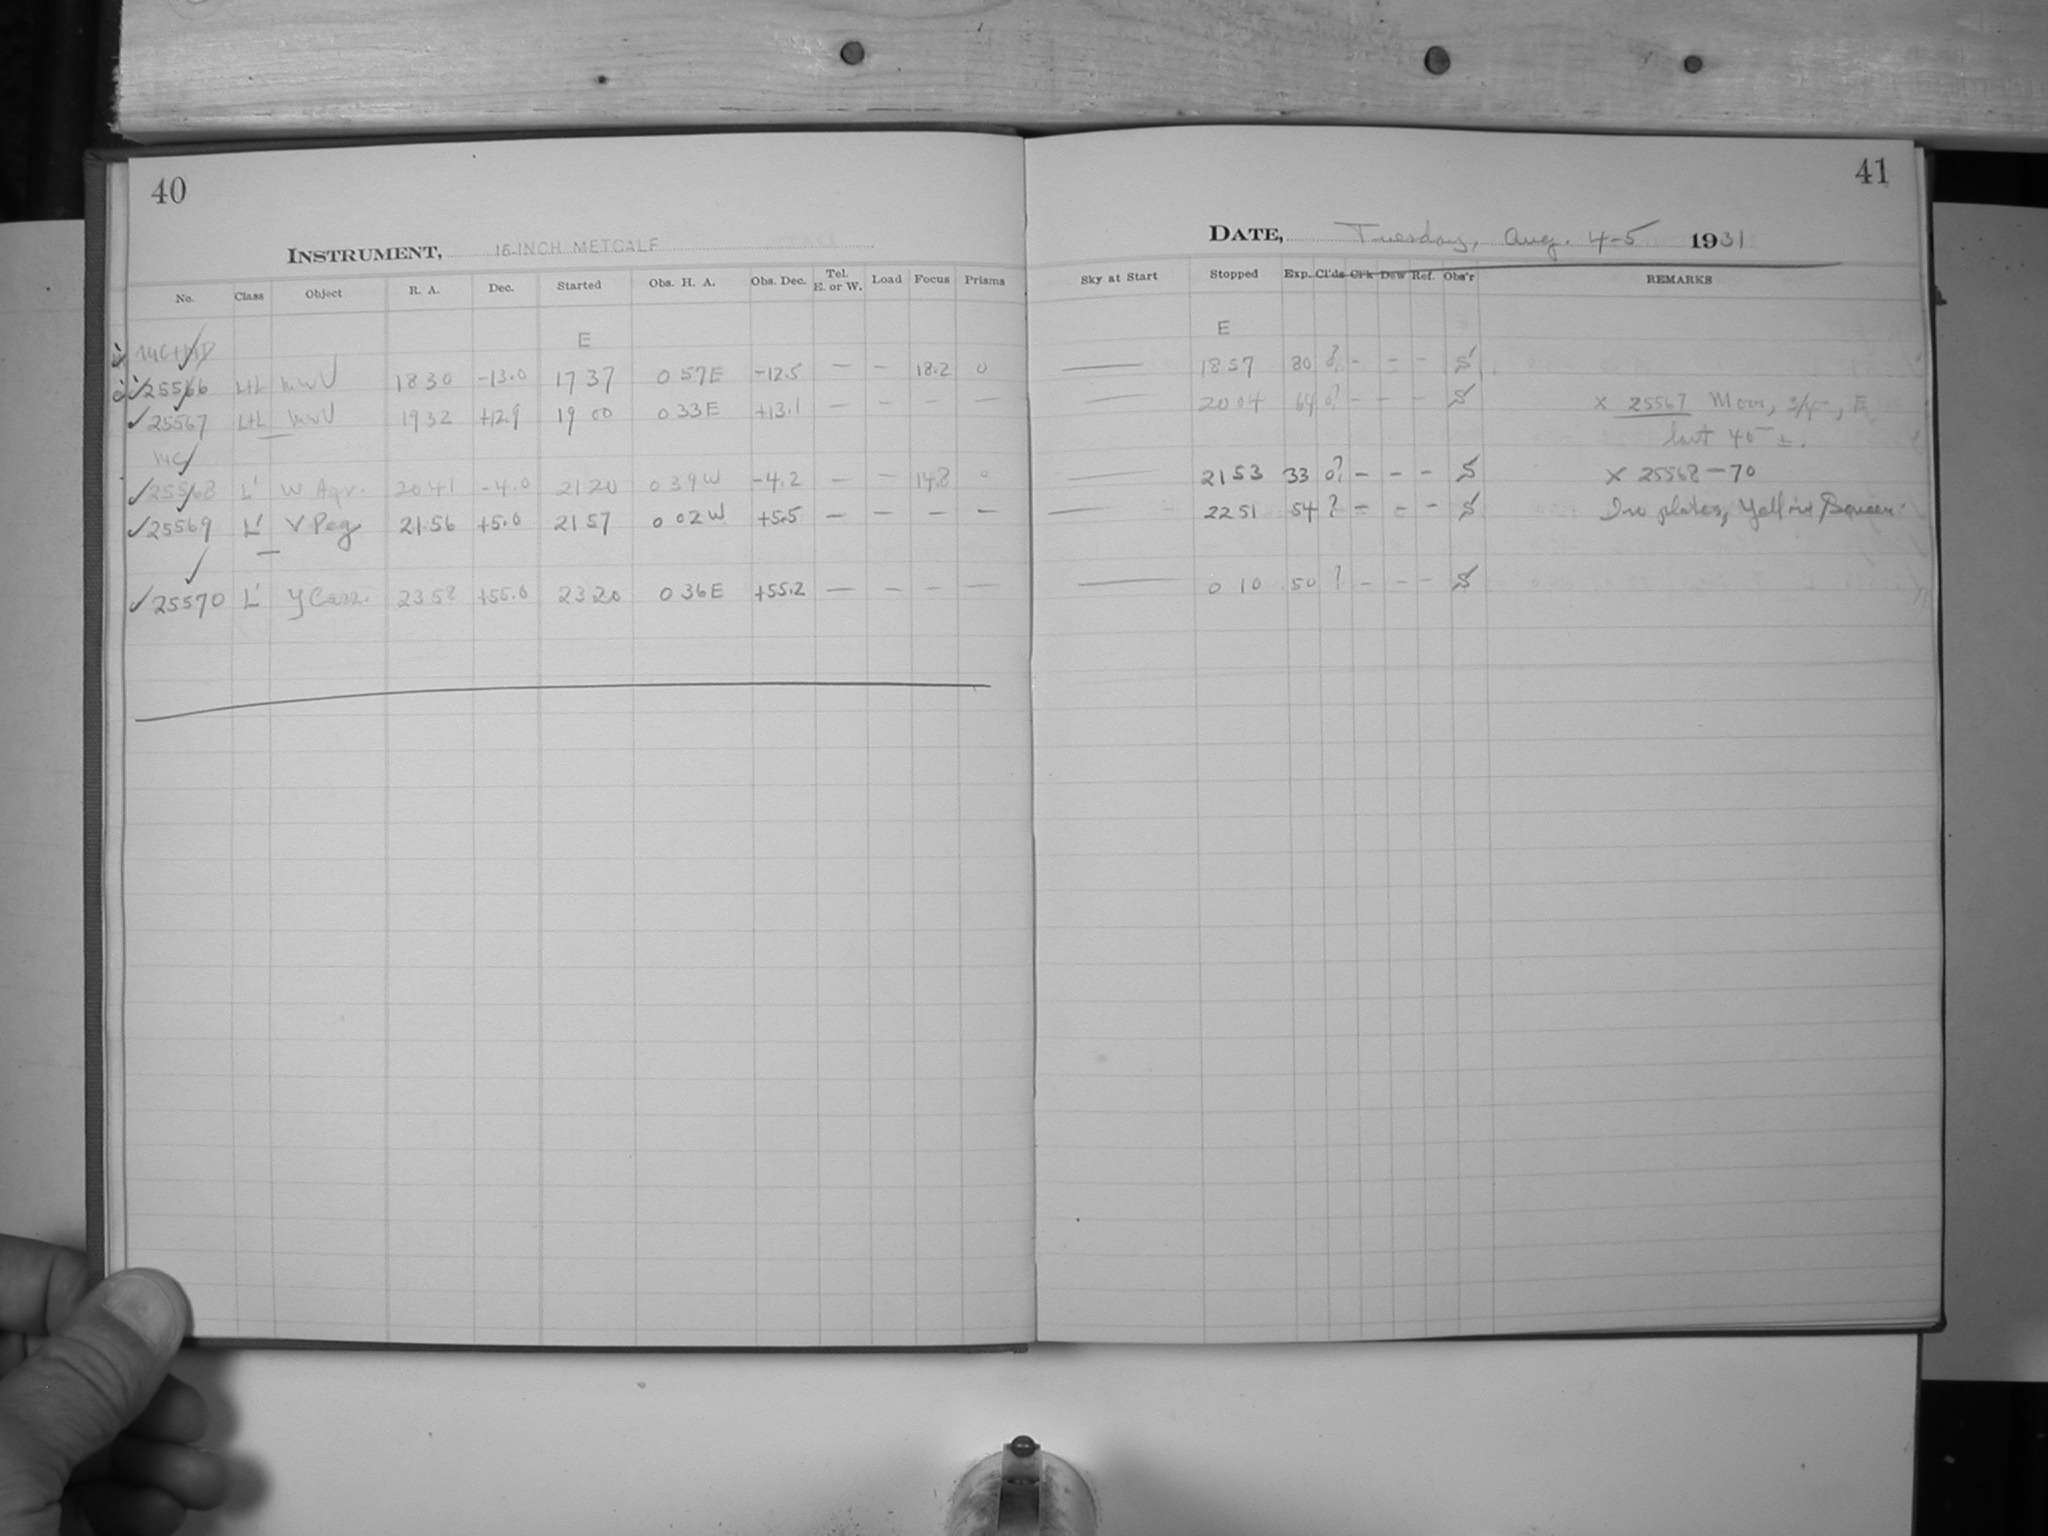 40
INSTRUMENT, 16-INCH METCALF
No. Class Object R. A. Dec. Started Obs. H. A. Obs. Dec. Tel. E. or W. Load Focus Prisms
E
25566 L+L MWV 18 30 -13.0 17 37 0 57E -12.5 — — 18.2 0
25567 L+L MWV 19 32 +12.9 19 00 0 33E +13.1 — — — —
MC
25568 L' W Aqr. 20 41 -4.0 21 20 0 39W -4.2 — — 14.8 0
25569 L' V Peg 21 56 +5.0 21 57 0 02W +5.5 — — — —
25570 L' Y Cass. 23 58 +55.0 23 20 0 36E +55.2 — — — —
41
DATE, Tuesday, Aug. 4-5 1931
Sky at Start Stopped Exp. Cl'ds Cl'k Dew Ref. Obs'r REMARKS
E
— 18 57 80 0? - - - S
— 20 04 64 0? - - - S x 25567 Moon, 3/4, E
last 40m ±.
— 21 53 33 0? - - - S x 25568-70
— 22 51 54 ? - - - S Iso plates, Yellow Screen
— 0 10 50 ? - - - S